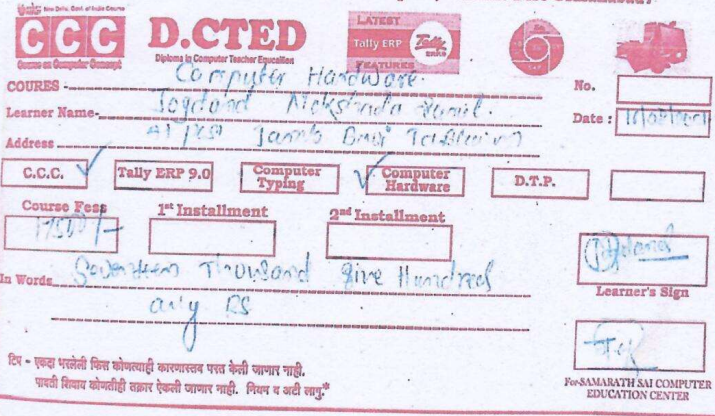 New Delhi, Govt. of India Course
CCC
Course on Computer Concept
D.CTED
Diploma in Computer Teacher Education
LATEST
Tally ERP
FEATURES
Tally
ERP 9
COURES - Computer Hardware.
No.
Learner Name- Jogdand
Date :
Address At post Jamb
C.C.C. ✓
Tally ERP 9.0
Computer Typing
✓ Computer Hardware
D.T.P.
Course Fess
1st Installment
2nd Installment
17500/-
In Words Seventeen Thousand Five Hundred
only RS
Learner's Sign
टिप - एकदा भरलेली फिस कोणत्याही कारणास्तव परत केली जाणार नाही.
पावती शिवाय कोणतीही तक्रार ऐकली जाणार नाही. नियम व अटी लागु.*
For-SAMARATH SAI COMPUTER
EDUCATION CENTER